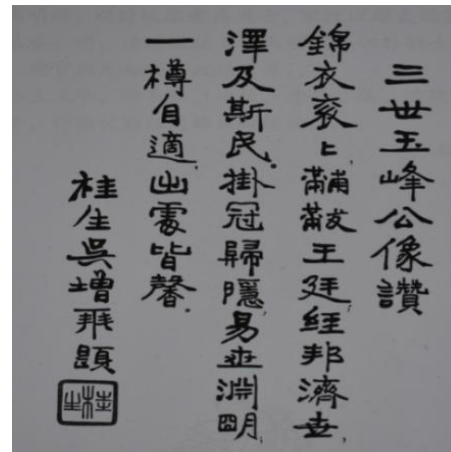 三世玉峰公像讚
錦衣袞〻黼黻王廷經邦濟世
澤及斯民掛冠歸隱易世淵明
一樽自適出處皆馨
桂生吳增拜題
桂生